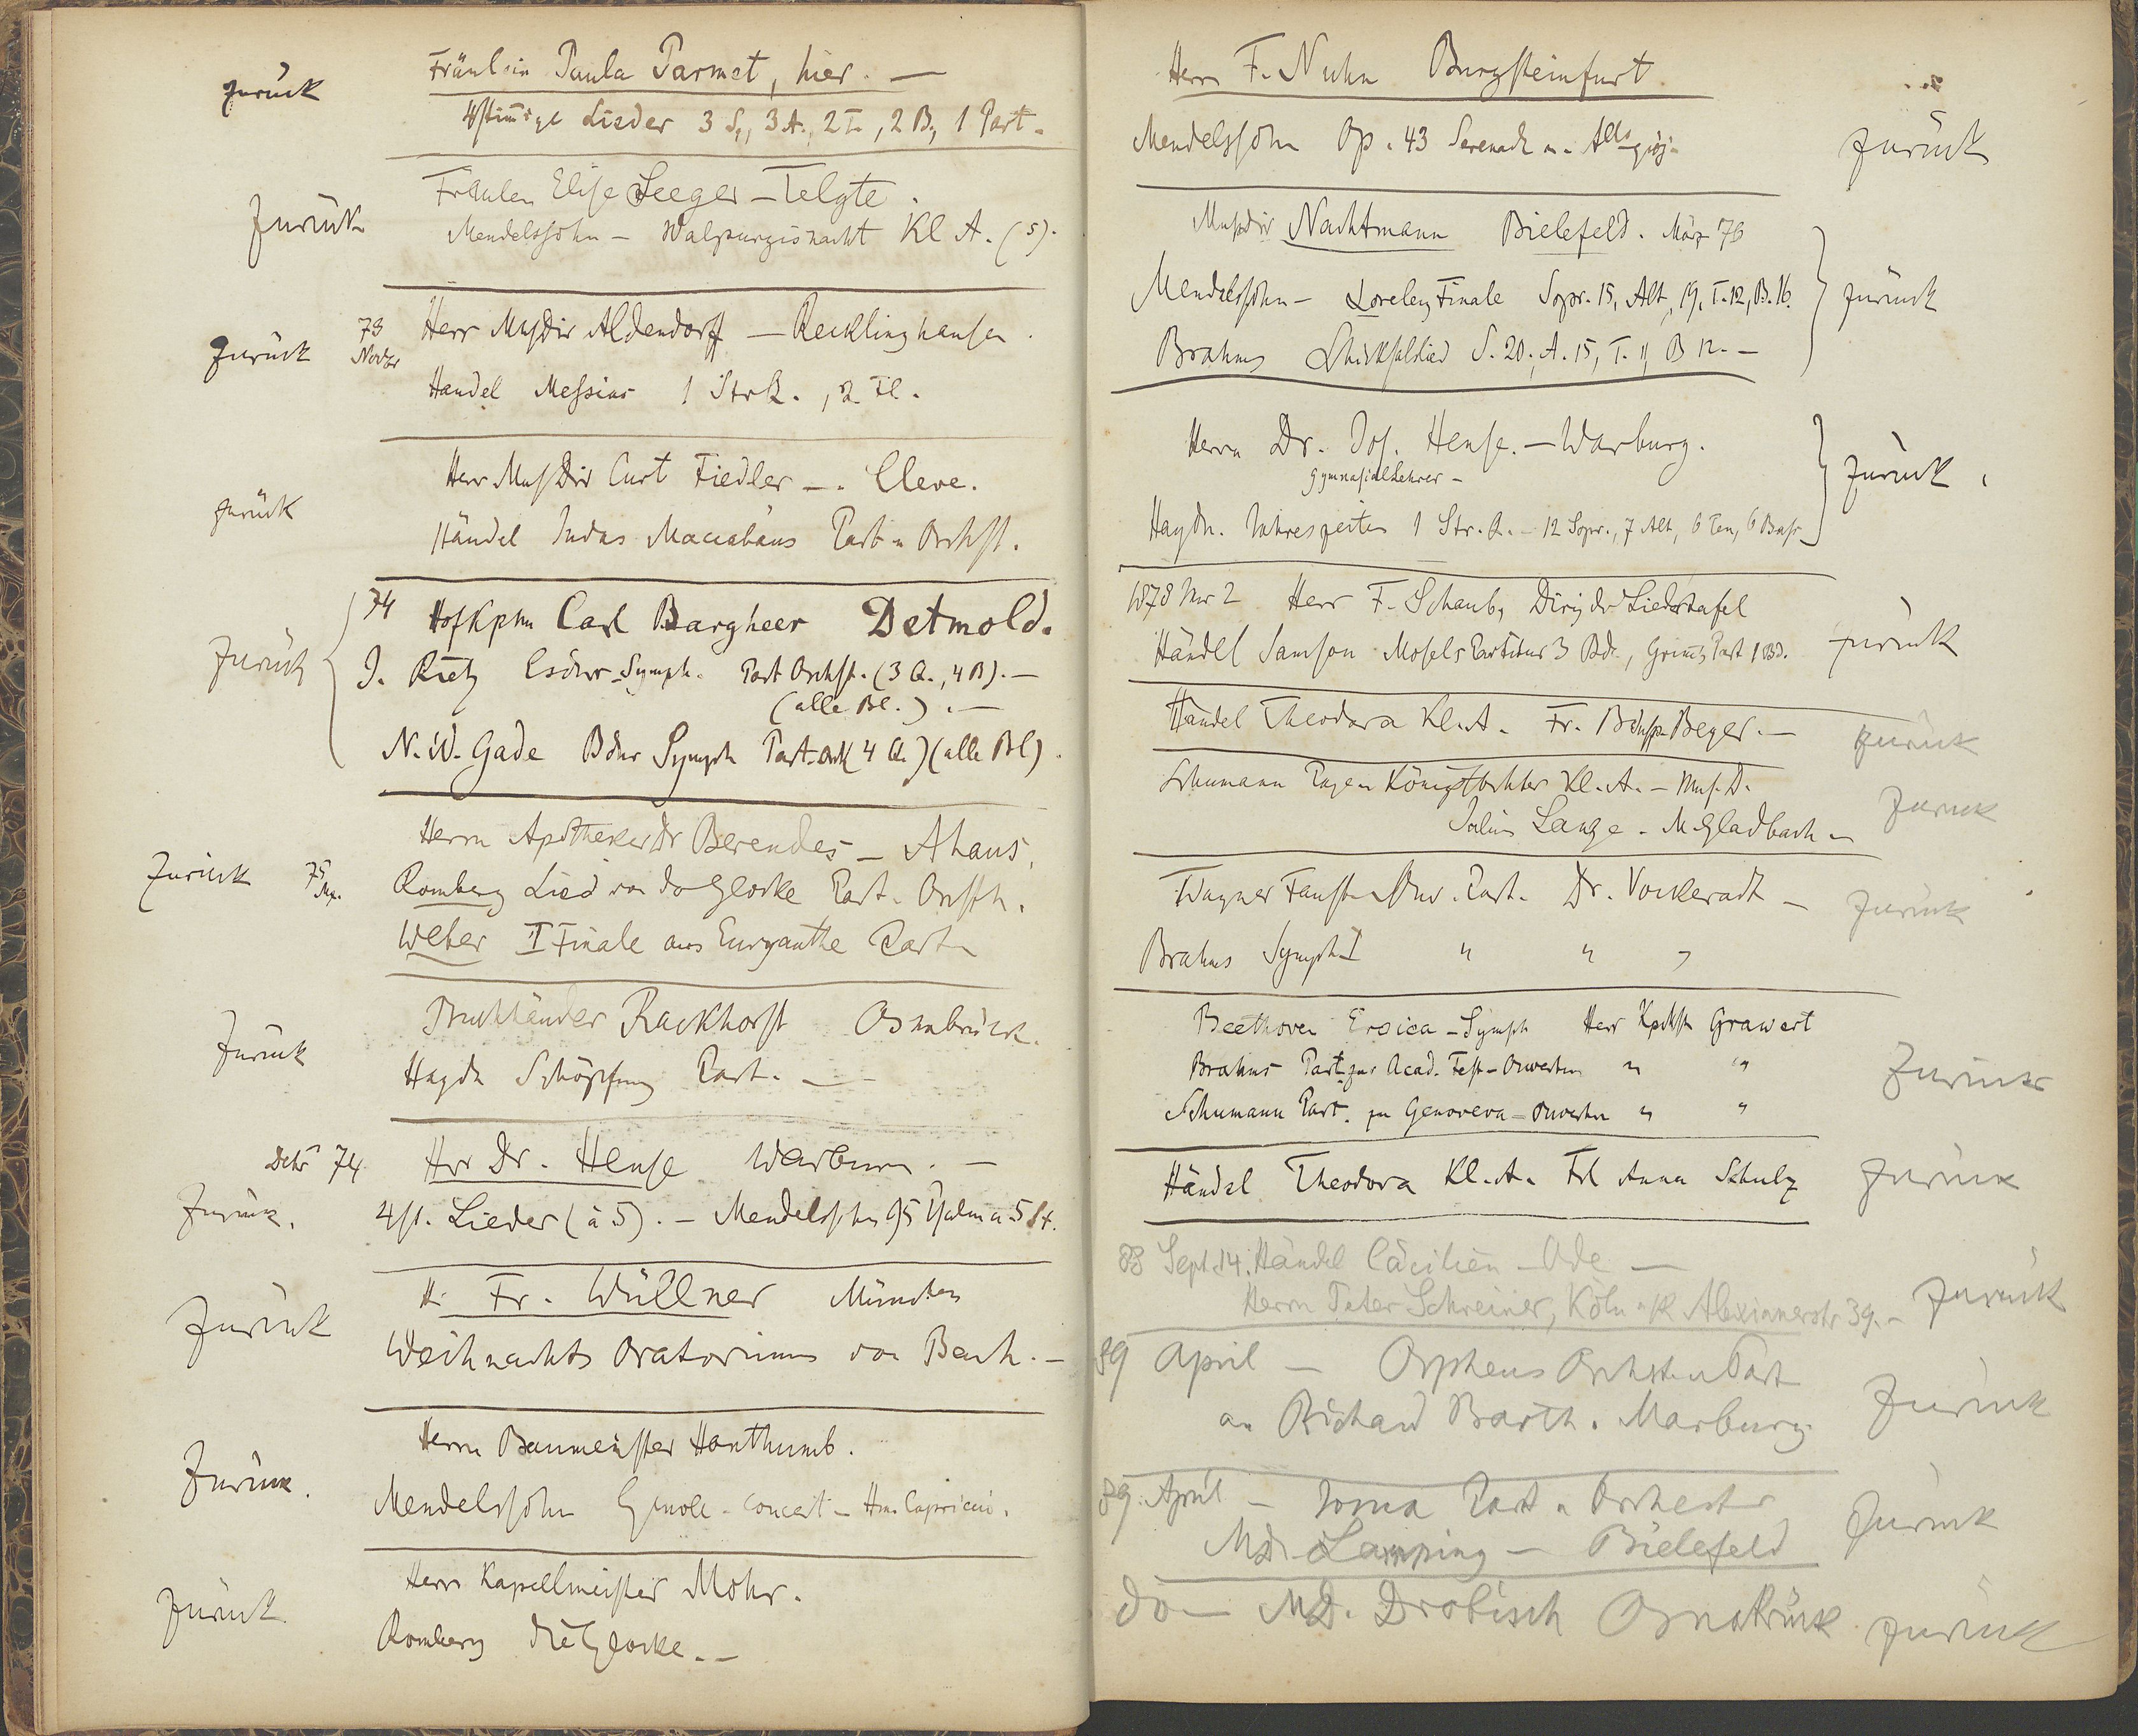 zurück Fräulein Paula Parmet, hier. —
4stimige Lieder 3 S., 3 A., 2 T., 2 B., 1 Part.
zurück Fräulen Elise Seeger – Telgte.
Mendelssohn – Walpurgisnacht Kl A. (5).
zurück 73 Novbr Herr MusDir Aldendorff — Recklinghausen.
Handel Messias 1 StrQ., 2 Fl.
zurück Herr MusDir Curt Fiedler –. Cleve.
Händel Judas Maccabäus Part u Orchst.
zurück 74 Hofkpm Carl Bargheer Detmold.
J. Rietz Esdur-Symph. Part Orchst. (3 Q., 4 B). —
(alle Bl.). —
N. W. Gade Bdur Symph Part. Orch (4 Q.) (alle Bl).
Herrn Apotheker Dr Berendes – Ahaus.
zurück 75 Romberg Lied von der Glocke Part. Orchst.
Weber I Finale aus Euryanthe Part
Buchhänder Rackhorst Osnabrück.
zurück Haydn Schöpfung Part. —
Dcbr 74 Hrr Dr. Hense Warburg. —
zurück. 4st. Lieder (à 5). – Mendelssohn 95 Psalm à 5 St.
H. Fr. Wüllner München
zurück Weihnachts Oratorium von Bach. —
Herrn Baumeister Hanthumb.
zurück. Mendelssohn Gmoll-Concert – Hm. Capriccio.
Herrn Kapellmeister Mohr.
zurück Romberg die Glocke. —
Herrn F. Nuhn Burgsteinfurt
Mendelssohn Op. 43 Serenade u. Allo gioj. zurück
Musdir Nachtmann Bielefeld. März 76
Mendelssohn – Loreley Finale Sopr. 15, Alt, 19, T. 12, B. 16. zurück
Brahms Schicksalslied S. 20, A. 15, T. 11, B 12. —
Herrn Dr. Jos. Hense. — Warburg. zurück.
Gymnasiallehrer –
Haydn. Jahreszeiten 1 Str. Q. – 12 Sopr., 7 Alt, 6 Ten, 6 Bass.
1878 Nov 2 Herr F. Schaub, Dirig der Liedertafel
Händel Samson Mosels Partitur 3 Bde., Grimms Part 1 Bd. zurück
Händel Theodora Kl. A. Fr. Beyer. — zurück
Schumann Pagen Königstochter Kl. A. – Mus. D.
Julius Lange – M Gladbach – zurück
Wagner Faust-Ouv. Part. Dr. Vockeradt – zurück
Brahms Symph I " " "
Beethoven Eroica-Symph Herr Kpllm Grawert
Brahms Part. zur Acad. Fest-Ouverture " " zurück
Schumann Part. zu Genoveva-Ouverture " "
Händel Theodora Kl. A. Frl Anna Schulz zurück
88 Sept 14. Händel Cäcilien-Ode —
Herrn Pater Schreiner, Köln a/R Alexianerstr 39. – zurück
89 April — Orpheus Orchster u Part
an Richard Barth. Marburg. zurück
89. April – Part u Orchester
MD. Lamping — Bielefeld zurück
do — MD. Drobisch Osnabrück zurück